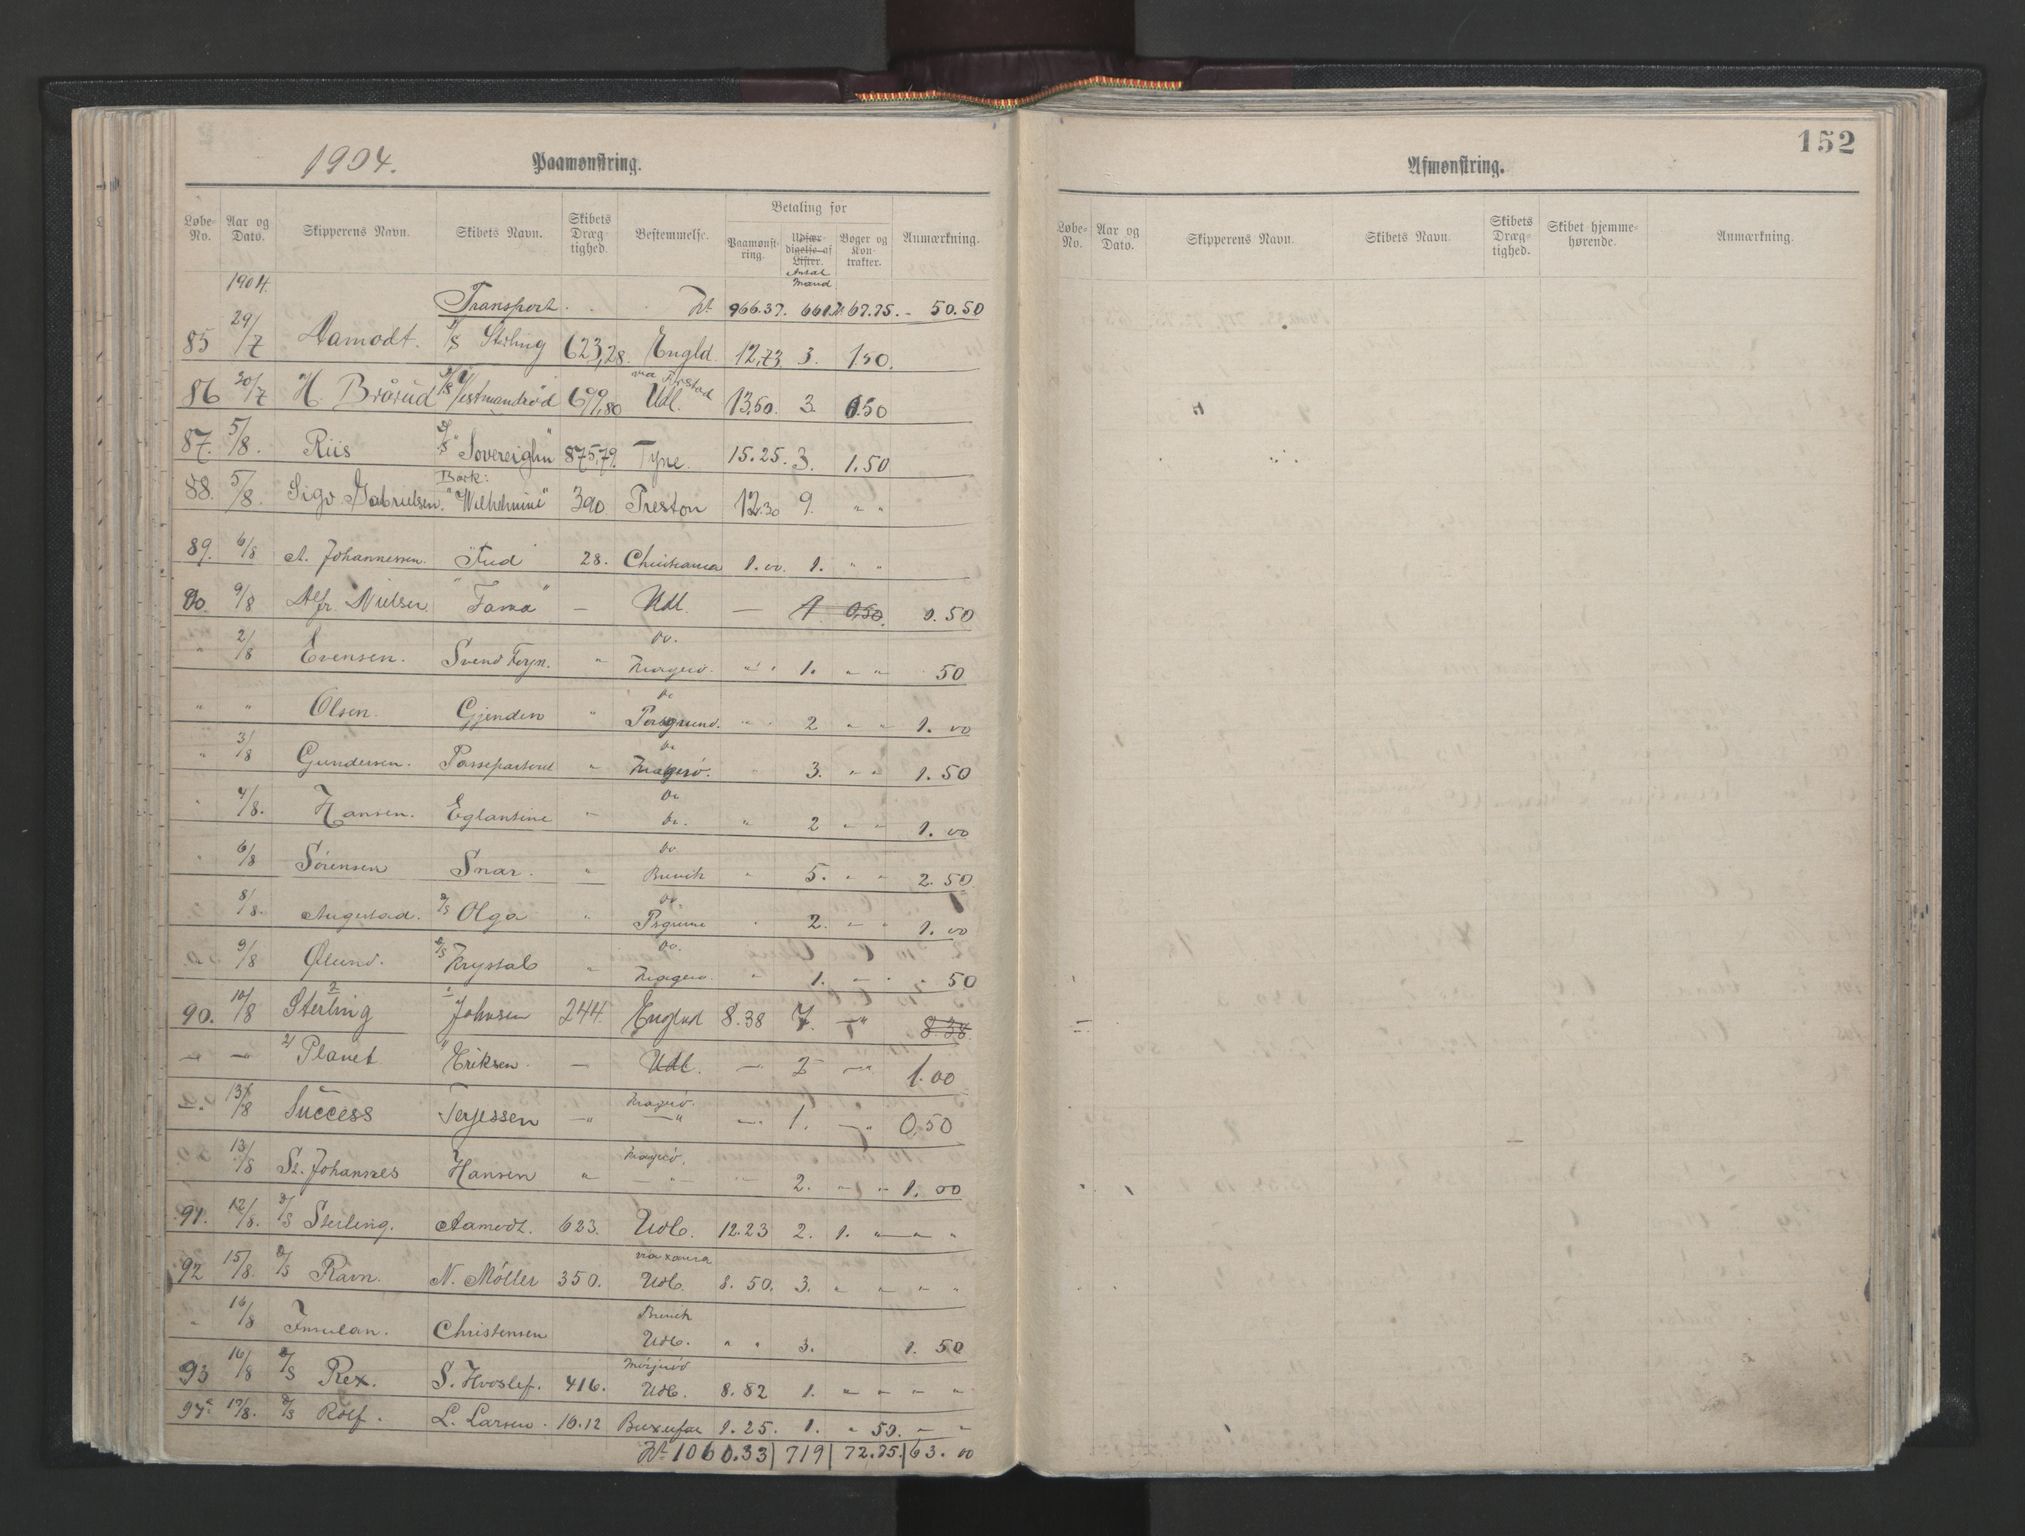 1904. Paamønstring.
Løbe-No. Aar og Dato. Skipperens Navn. Skibets Navn. Skibets Dræg-tighed. Bestemmelse. Betaling for Paamønst-ring. Udfær-digelse af Lister. Antal Mand Bøger og Kon-trakter. Anmærkning.
1904.
Transport. 966.37. 661. 67.75. 50.50
85 29/7 Aamodt. D/S Sterling 623,28. Engld. 12,73 3. 1.50.
86 30/7 H. Brårud D/S Vestmandrød 699,80 Udl. 13,50. 3. 1.50
87. 5/8. Riis D/S "Sovereighn" 875,79. Tyne. 15.25. 3. 1.50
88. 5/8. Sigv Gabrielsen. Bark: "Wilhelmine" 390 Preston 12.30 9. " "
89. 6/8 A. Johannessen. 28. Christiania 1.00. 1. " "
90. 9/8 Alfr. Nielsen "Fama" — Udl. — 1 0,50. 0.50
" 2/8 Evensen. Svend Foyn. " do. Magerø. " " 1. " " 50
" " Olsen. Gjenden " do Porsgrund. " " 2 " " 1.00
" 3/8 Gundersen. Passepartout " do Magerø. " 3. " " 1.50
" 4/8. Hansen. Eglantine " do do. " 2 " " 1.00
" 6/8 Sørensen Snar. " do Brevik " 5. " " 2.50
8/8. Augestad. D/S Olga " do. Psgrund " 2. " " 1.00
9/8 Ølund. D/S Krystal " do. Magerø. " 1. " " 50
90. 10/8 2 Sterling 1 Johnsen 244. Englnd 8.38 7. — " 8.38
— — 2/ Planet " Eriksen. — Udl. — 2 — " 1.00
". 13/8 Success Terjessen — " Magerø. — " — " 1. — " 0,50
13/8 St. Johannes Hansen " Magerø. — " — " " 2. " " 1.00
91. 12/8. D/S Sterling. Aamodt. 623. Udl. 12.23 2. 1. " " "
92 15/8. D/S Ravn. N. Möller 350. Udl. 8.50. 3. " " " "
" 16/8 Insulan. Christensen Brevik Udl. " " 3. 1.50
93 16/8 D/S Rex. S. Hvoslef. 416. Udl. 8.82 1. " " " "
94a 17/8. D/S Rolf. L. Larsen. 16.12 1.25. 1. " 50. " "
1060.33 | 719 | 72.75. | 63.00
152
Afmønstring.
Løbe-No. Aar og Dato. Skipperens Navn. Skibets Navn. Skibets Dræg-tighed. Skibet hjemme-hørende. Anmærkning.